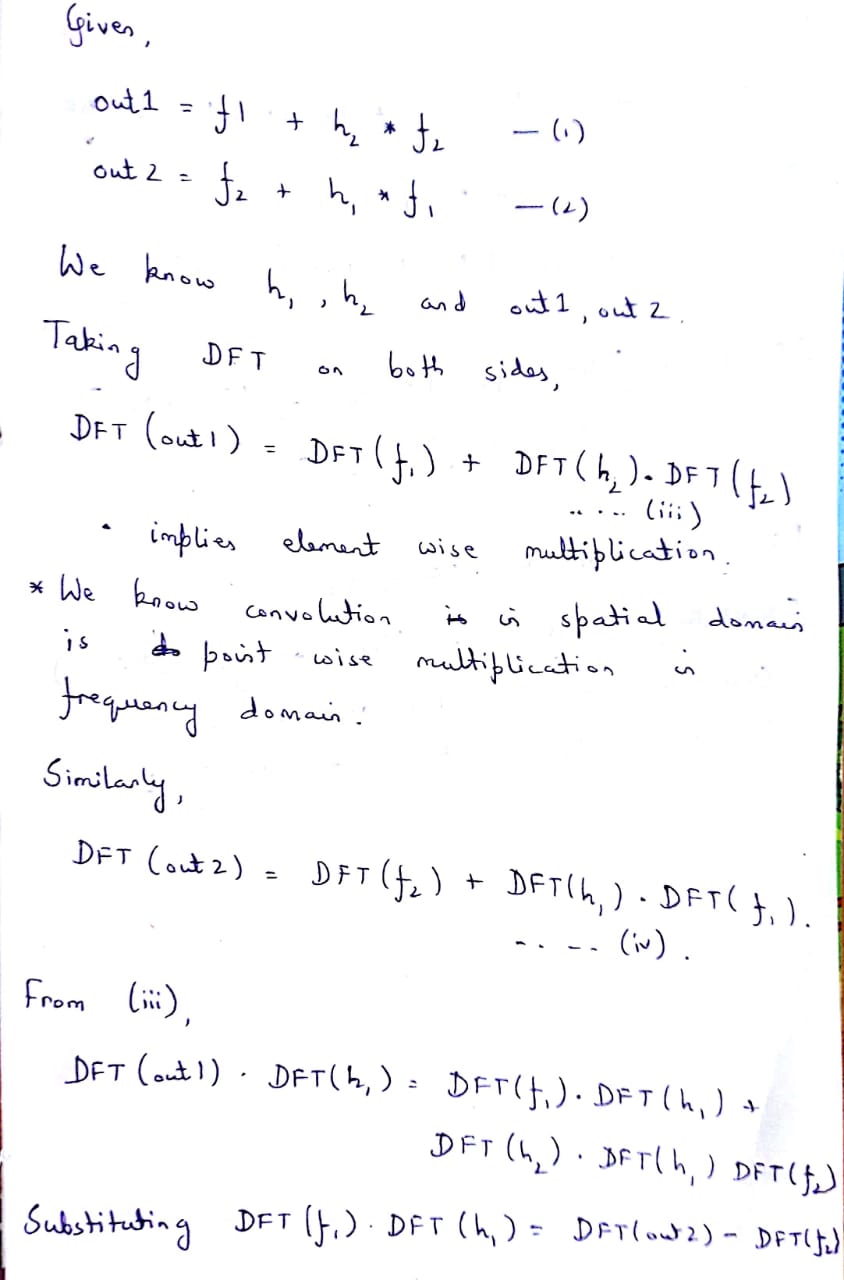 Given,
out1 = f1 + h₂ * f₂ — (1)
out 2 = f₂ + h₁ * f₁ — (2)
We know h₁, h₂ and out1, out 2.
Taking DFT on both sides,
DFT (out1) = DFT(f₁) + DFT(h₂). DFT(f₂)
..... (iii)
• implies element wise multiplication.
* We know convolution in spatial domain
is point wise multiplication in
frequency domain.
Similarly,
DFT (out2) = DFT(f₂) + DFT(h₁) . DFT(f₁).
..... (iv).
From (iii),
DFT (out1) . DFT(h₁) = DFT(f₁). DFT(h₁) +
DFT (h₂) . DFT(h₁) DFT(f₂)
Substituting DFT (f₁) . DFT (h₁) = DFT(out2) - DFT(f₂)